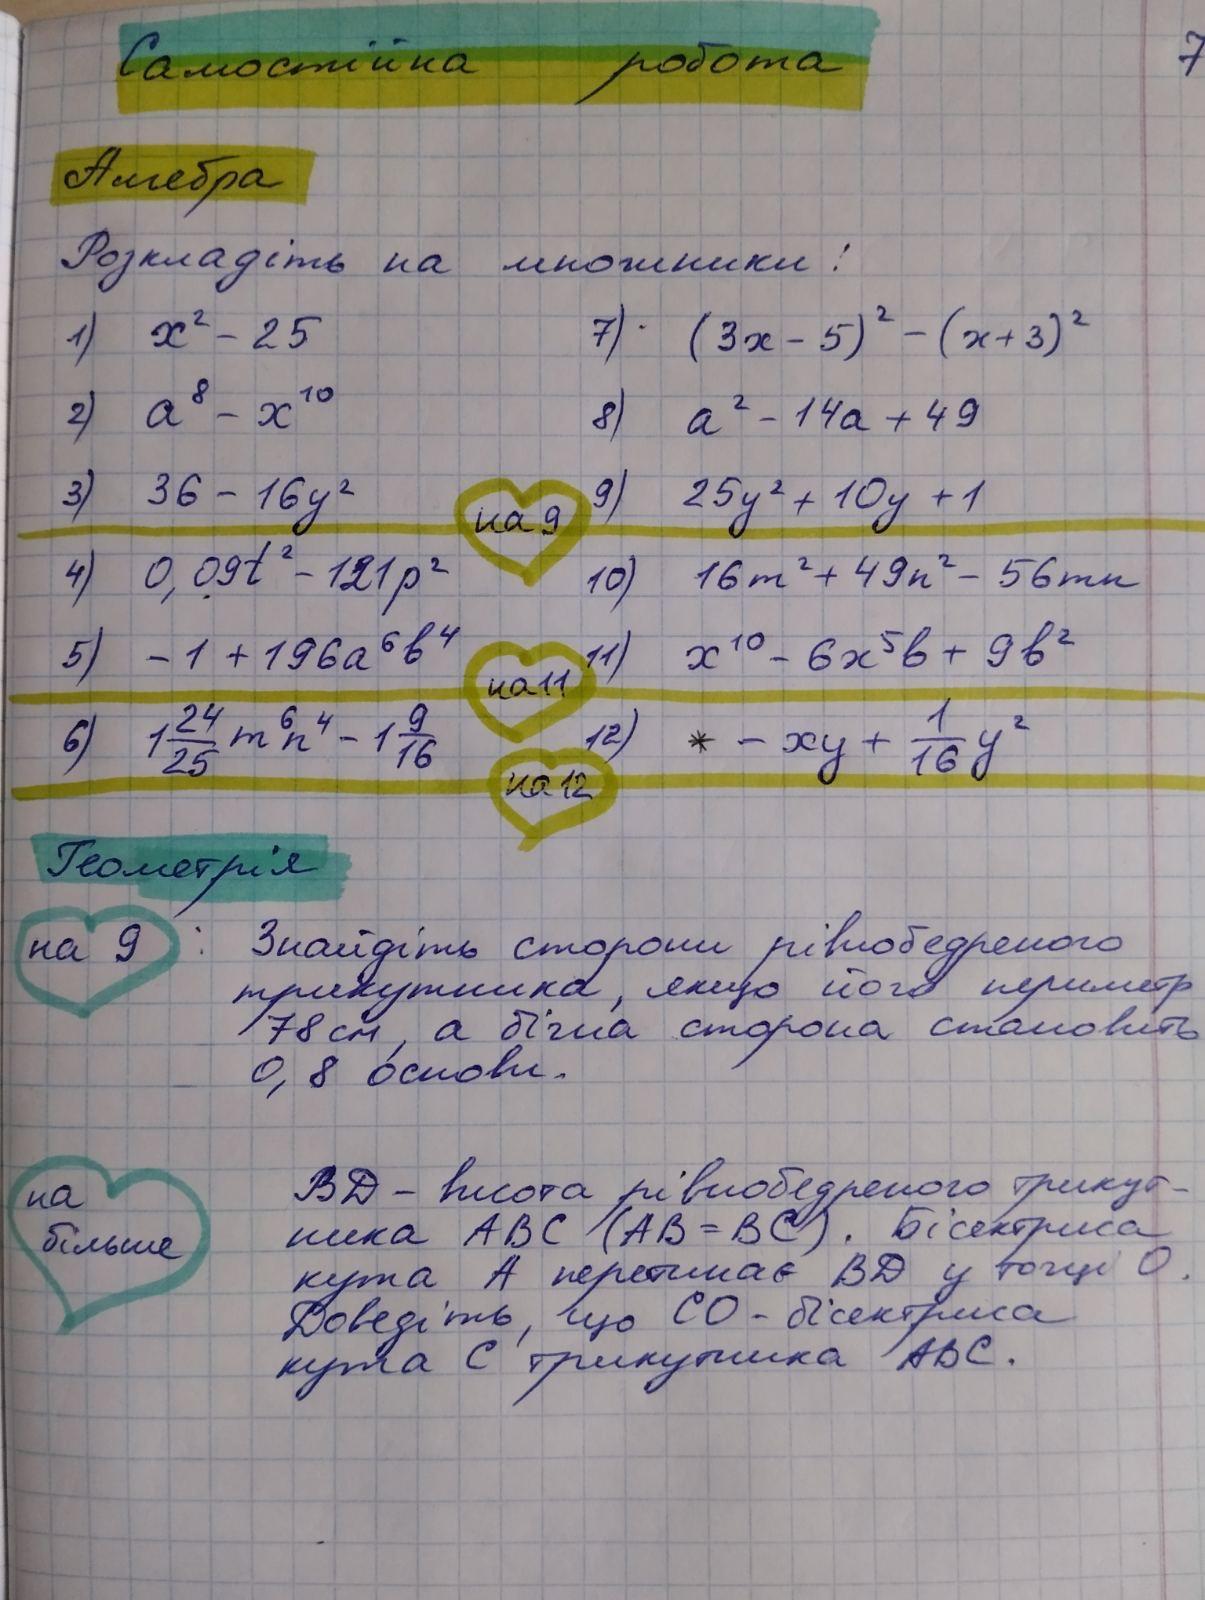 Самостійна робота
7
Алгебра
Розкладіть на множники:
1) x² - 25
7) (3x - 5)² - (x+3)²
2) a⁸ - x¹⁰
8) a² - 14a + 49
3) 36 - 16y²
на 9
9) 25y² + 10y + 1
4) 0,09t² - 121p²
10) 16m² + 49n² - 56mn
5) -1 + 196a⁶b⁴
на 11
11) x¹⁰ - 6x⁵b + 9b²
6) 1 24/25 m⁶n⁴ - 1 9/16
12) * - xy + 1/16 y²
на 12
Геометрія
на 9 : Знайдіть сторони рівнобедреного
трикутника, якщо його периметр
78 см, а бічна сторона становить
0,8 основи.
на
більше
BD - висота рівнобедреного трикут-
ника ABC (AB = BC). Бісектриса
кута A перетинає BD у точці O.
Доведіть, що CO - бісектриса
кута C трикутника ABC.